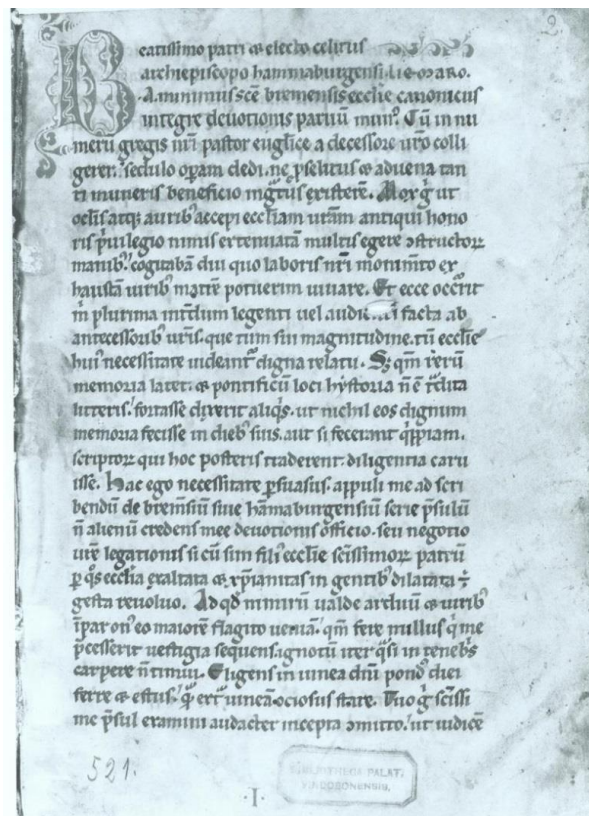 2.
Beatissimo patri & electo celitus
archiepiscopo hammaburgensi liemaro.
A. minimus scē bremensis ecclīe canonicus
integre deuotionis paruū mun᷒. Cū in nu
merū gregis nr̄i pastor eug̅lice a decessore uro colli
gerer. sedulo opam dedi. ne pselitus & aduena tan
ti muneris beneficio ingtus existerē. Mox g ut
oclis atq; aurib᷒ accepi eccliam urām antiqui hono
ris puilegio nimis extenuatā multis egere ɔstructoꝝ
manib᷒. cogitabā diu quo laboris nr̄i monim̄to ex
haustā uirib᷒ matrē potuerim iuuare. Et ecce occrit
m̄ plurima int̄dum legenti uel audienti facta ab
antecessorib᷒ ur̄is. que tum sui magnitudine. tū ecclīe
hui᷒ necessitate uideant᷒ digna relatu. S; qm̄ rerū
memoria latet. & pontificū loci hystoria n̄ ē tdita
litteris. fortasse dixerit aliqs. ut nichil eos dignum
memoria fecisse in dieb᷒ suis. aut si fecerant qppiam.
scriptoꝝ qui hoc posteris traderent diligentia caru
isse. Hac ego necessitate psuasus. appuli me ad scri
bendū de bremsiū siue hāmaburgensiū serie psulū
n̄ alienū credens mee deuotionis officio. seu negotio
ure legationis si cū sim fili᷒ ecclie scissimoꝝ patrū
ꝑ qͦs ecclia exaltata & xpianitas in gentib᷒ dilatata ē
gesta reuoluo. Ad qd nimirū ualde arduū & uirib᷒
īpar on᷒ eo maiorē flagito ueniā. qm̄ fere nullus q me
pcesserit uestigia sequens. ignotū iter qsi in tenebs
carpere n̄ timui. Eligens in uinea dn̄i pond᷒ diei
ferre & estus. q ext uineā ociosus stare. Tuo g scissi
me psul examini audacter incepta ɔmitto. ut iudicē
521.
BIBLIOTHECA PALAT.
VINDOBONENSIS.
·I·